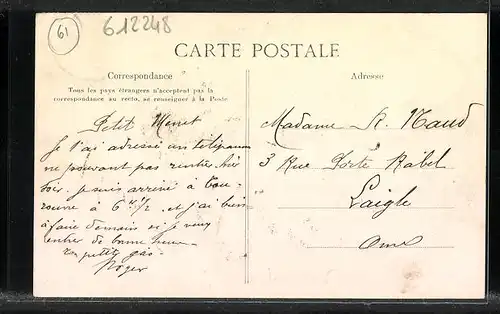 61
612248
CARTE POSTALE
Correspondance
Tous les pays étrangers n'acceptent pas la
correspondance au recto, se renseigner à la Poste
Adresse
Petit
Je t'ai adressé un
ne pouvant pas rentrer hier
soir. je suis arrivé à
à 6 H ½ et j'ai bien
à faire demain si je veux
rentrer de bonne heure
petit gas
Roger
Madame A. Naud
3 Rue Porte Rabel
Laigle
Orne